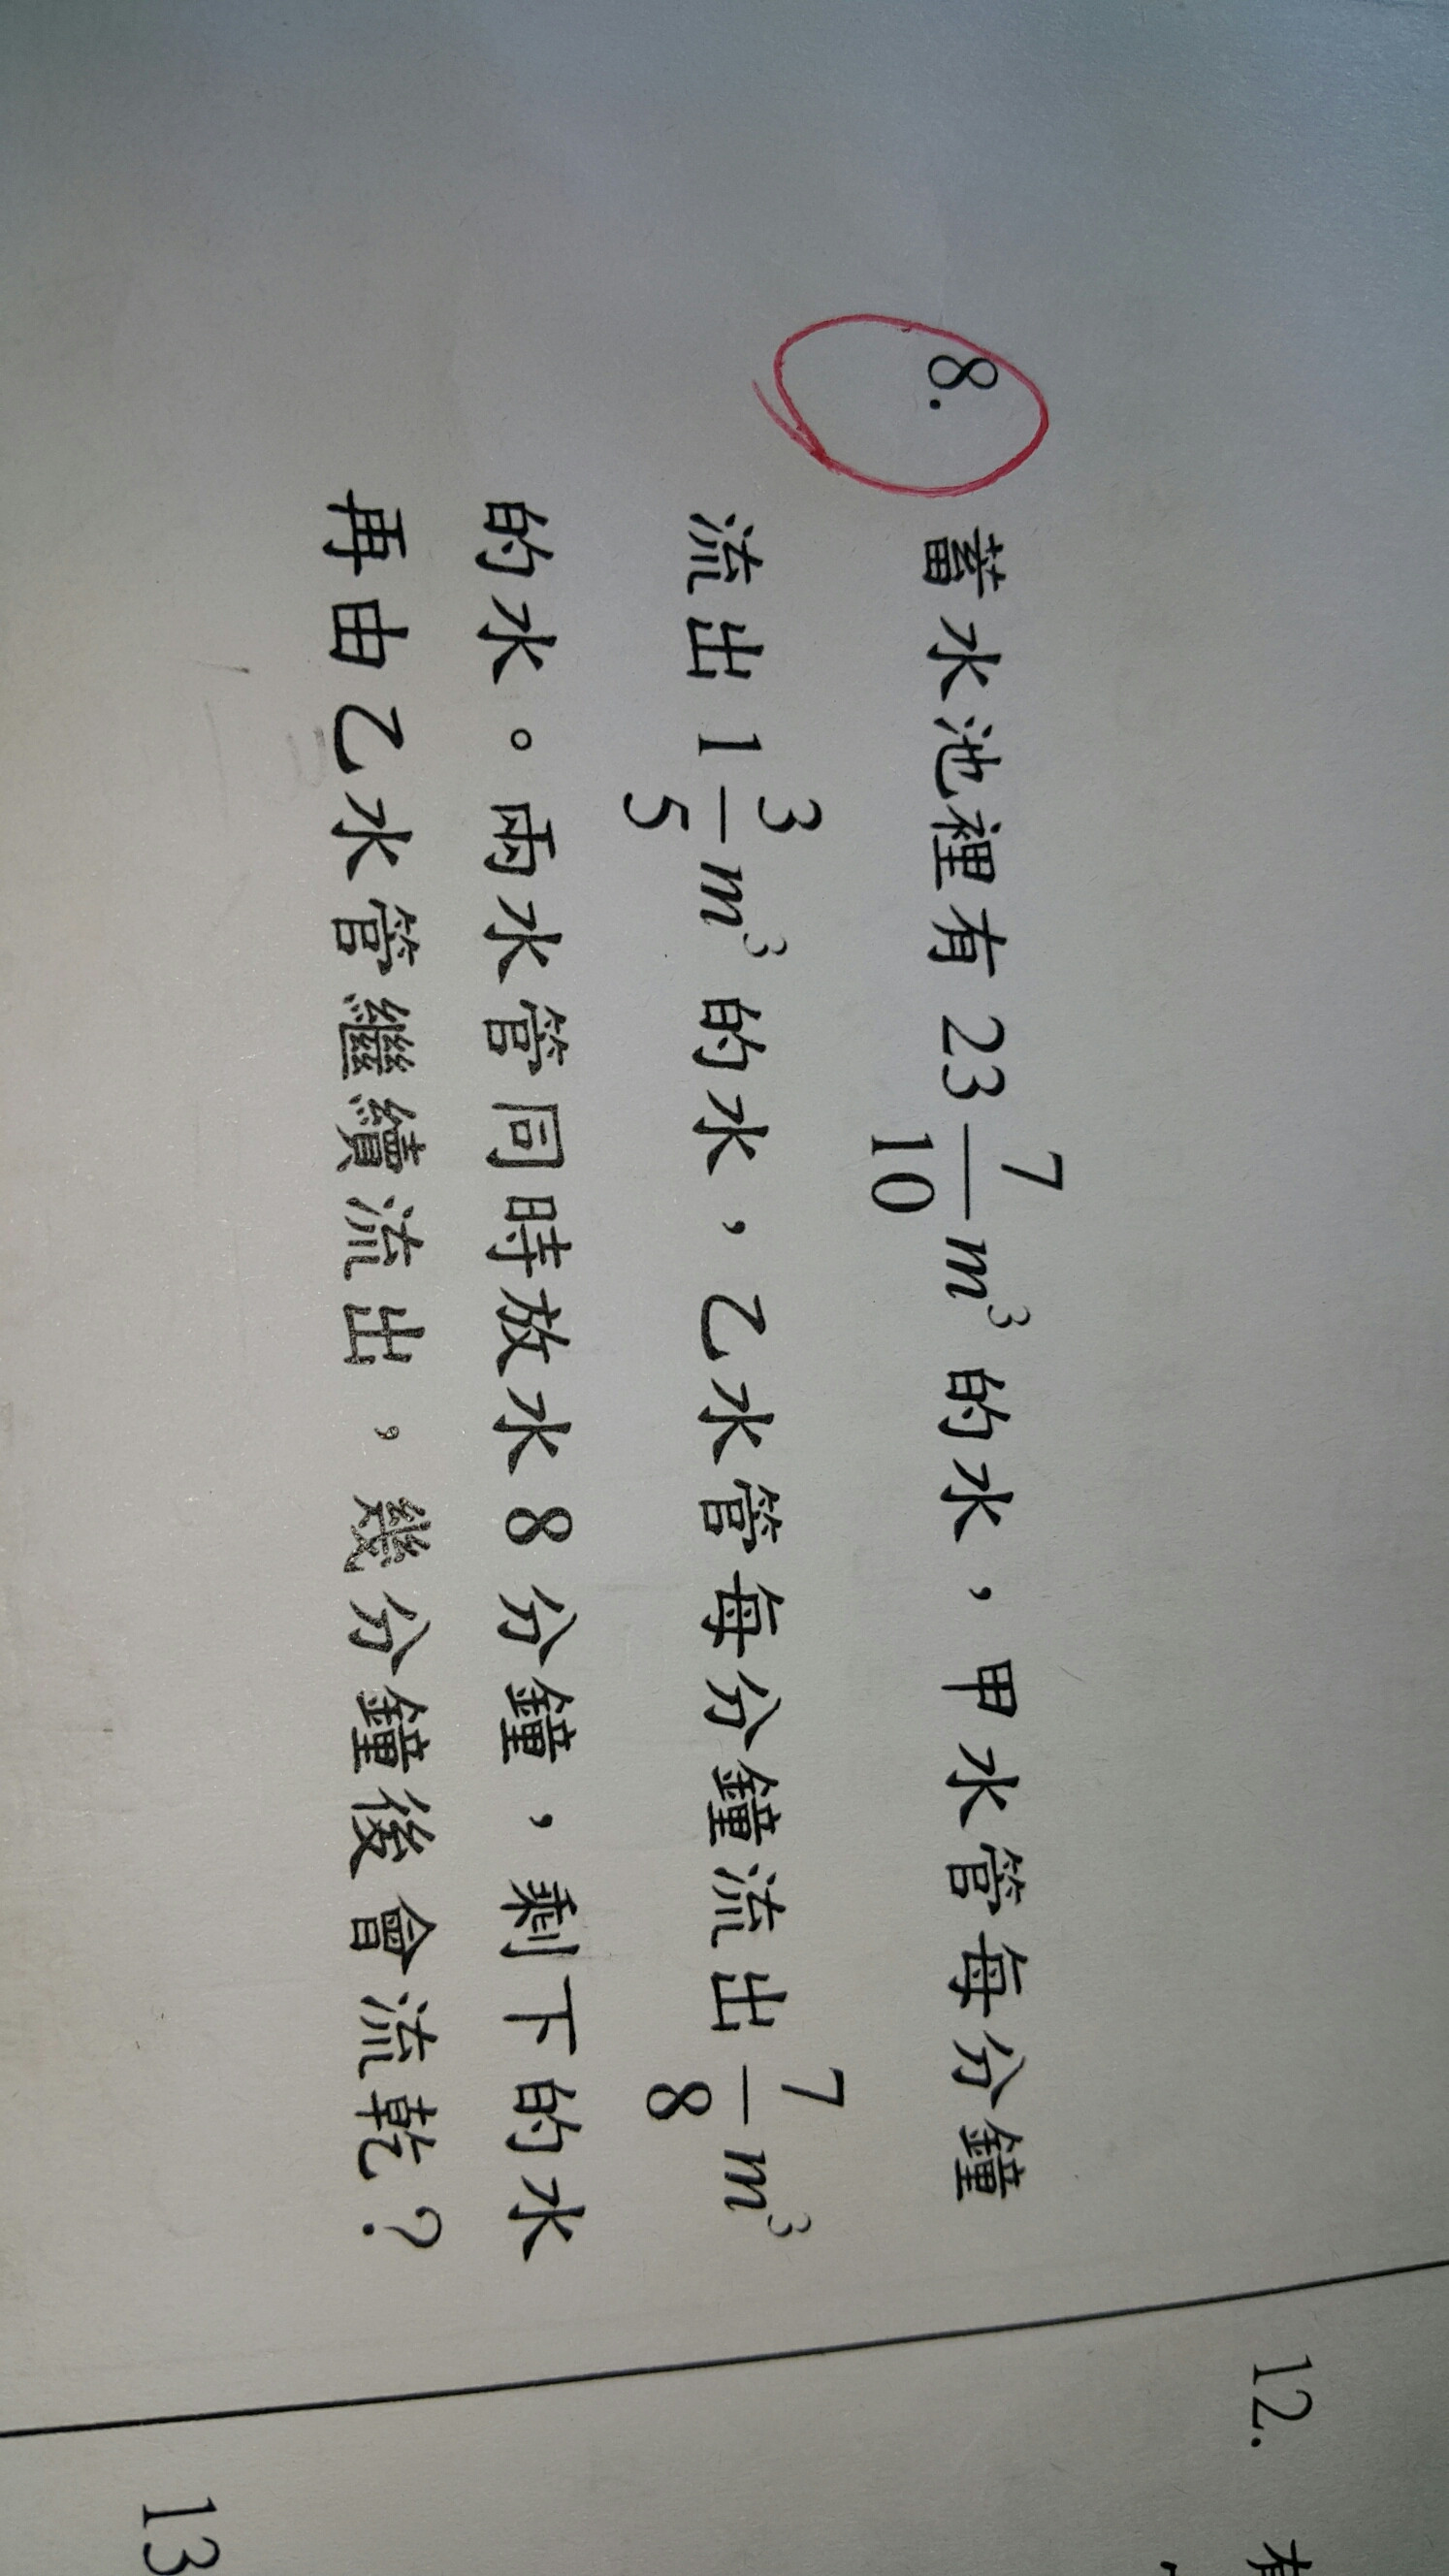 8. 蓄水池裡有 23 7/10 m³ 的水，甲水管每分鐘
流出 1 3/5 m³ 的水，乙水管每分鐘流出 7/8 m³
的水。兩水管同時放水 8 分鐘，剩下的水
再由乙水管繼續流出，幾分鐘後會流乾？
12. 有
13